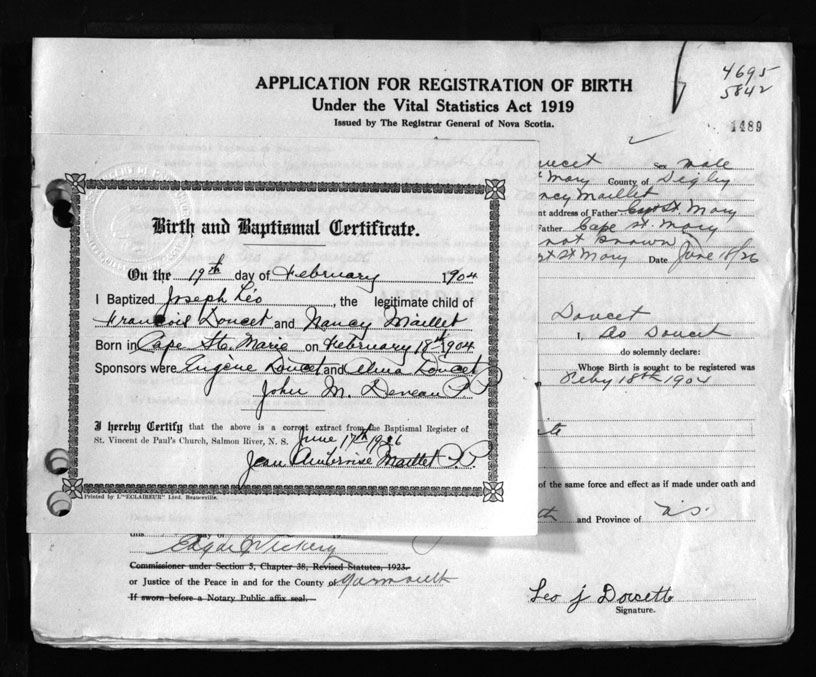 4695
5842
APPLICATION FOR REGISTRATION OF BIRTH
Under the Vital Statistics Act 1919
Issued by The Registrar General of Nova Scotia.
1489
Birth and Baptismal Certificate.
On the 19th day of February 1904
I Baptized Joseph Léo, the legitimate child of
François Doucet and Nancy Maillet
Born in Cape Ste. Marie on February 18th 1904
Sponsors were Eugène Doucet and Alma Doucet
John M. Deveau P.P.
I hereby Certify that the above is a correct extract from the Baptismal Register of
St. Vincent de Paul's Church, Salmon River, N. S. June 17th 1926
Jean Ambroise Maillet P.P.
Printed by L'"ECLAIREUR" Lted. Beauceville.
oucet Sex male
Mary County of Digby
ncy Maillet
nt address of Father Cape St. Mary
Father Cape St. Mary
not known
St Mary Date June 18/26
Doucet
I, Doucet
do solemnly declare:
Whose Birth is sought to be registered was
Feby 18th 1904
of the same force and effect as if made under oath and
th and Province of N.S.
this
Edgar Vickery
Commissioner under Section 5, Chapter 38, Revised Statutes, 1923.
or Justice of the Peace in and for the County of Yarmouth
If sworn before a Notary Public affix seal.
Leo J Doucette
Signature.